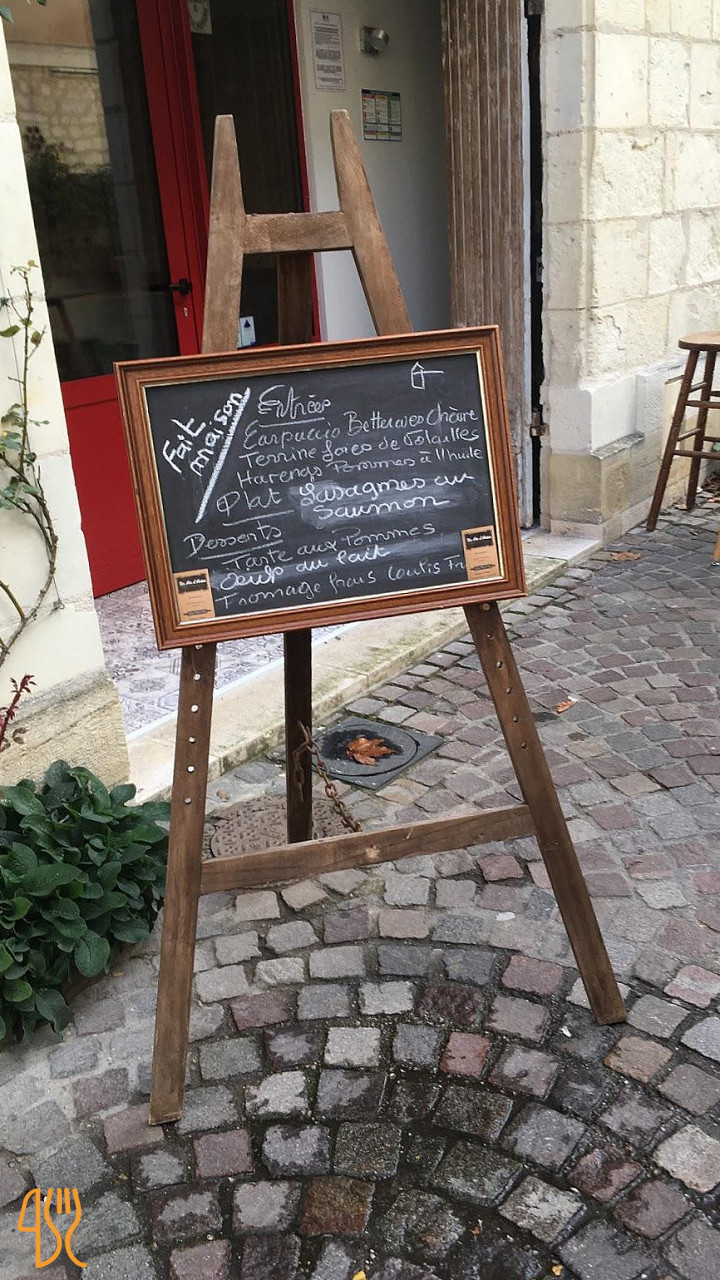 Fait
maison
Entrées
Carpuccio Betteraves Chèvre
Terrine Foies de Volailles
Harengs Pommes à l'huile
Plat Lasagnes au
Saumon
Desserts
Tarte aux Pommes
Oeufs au lait
Fromage frais Coulis Fr